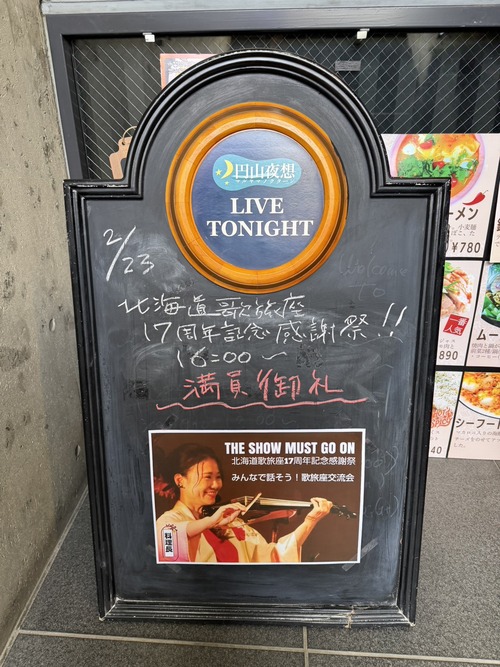 円山夜想
マルヤマノクターン
LIVE
TONIGHT
Welcome
To
2/23
北海道歌旅座
17周年記念感謝祭!!
16:00〜
満員御礼
THE SHOW MUST GO ON
北海道歌旅座17周年記念感謝祭
みんなで話そう！歌旅座交流会
料理長
ーメン
¥780
一番
人気
890
ムー
シーフー
40